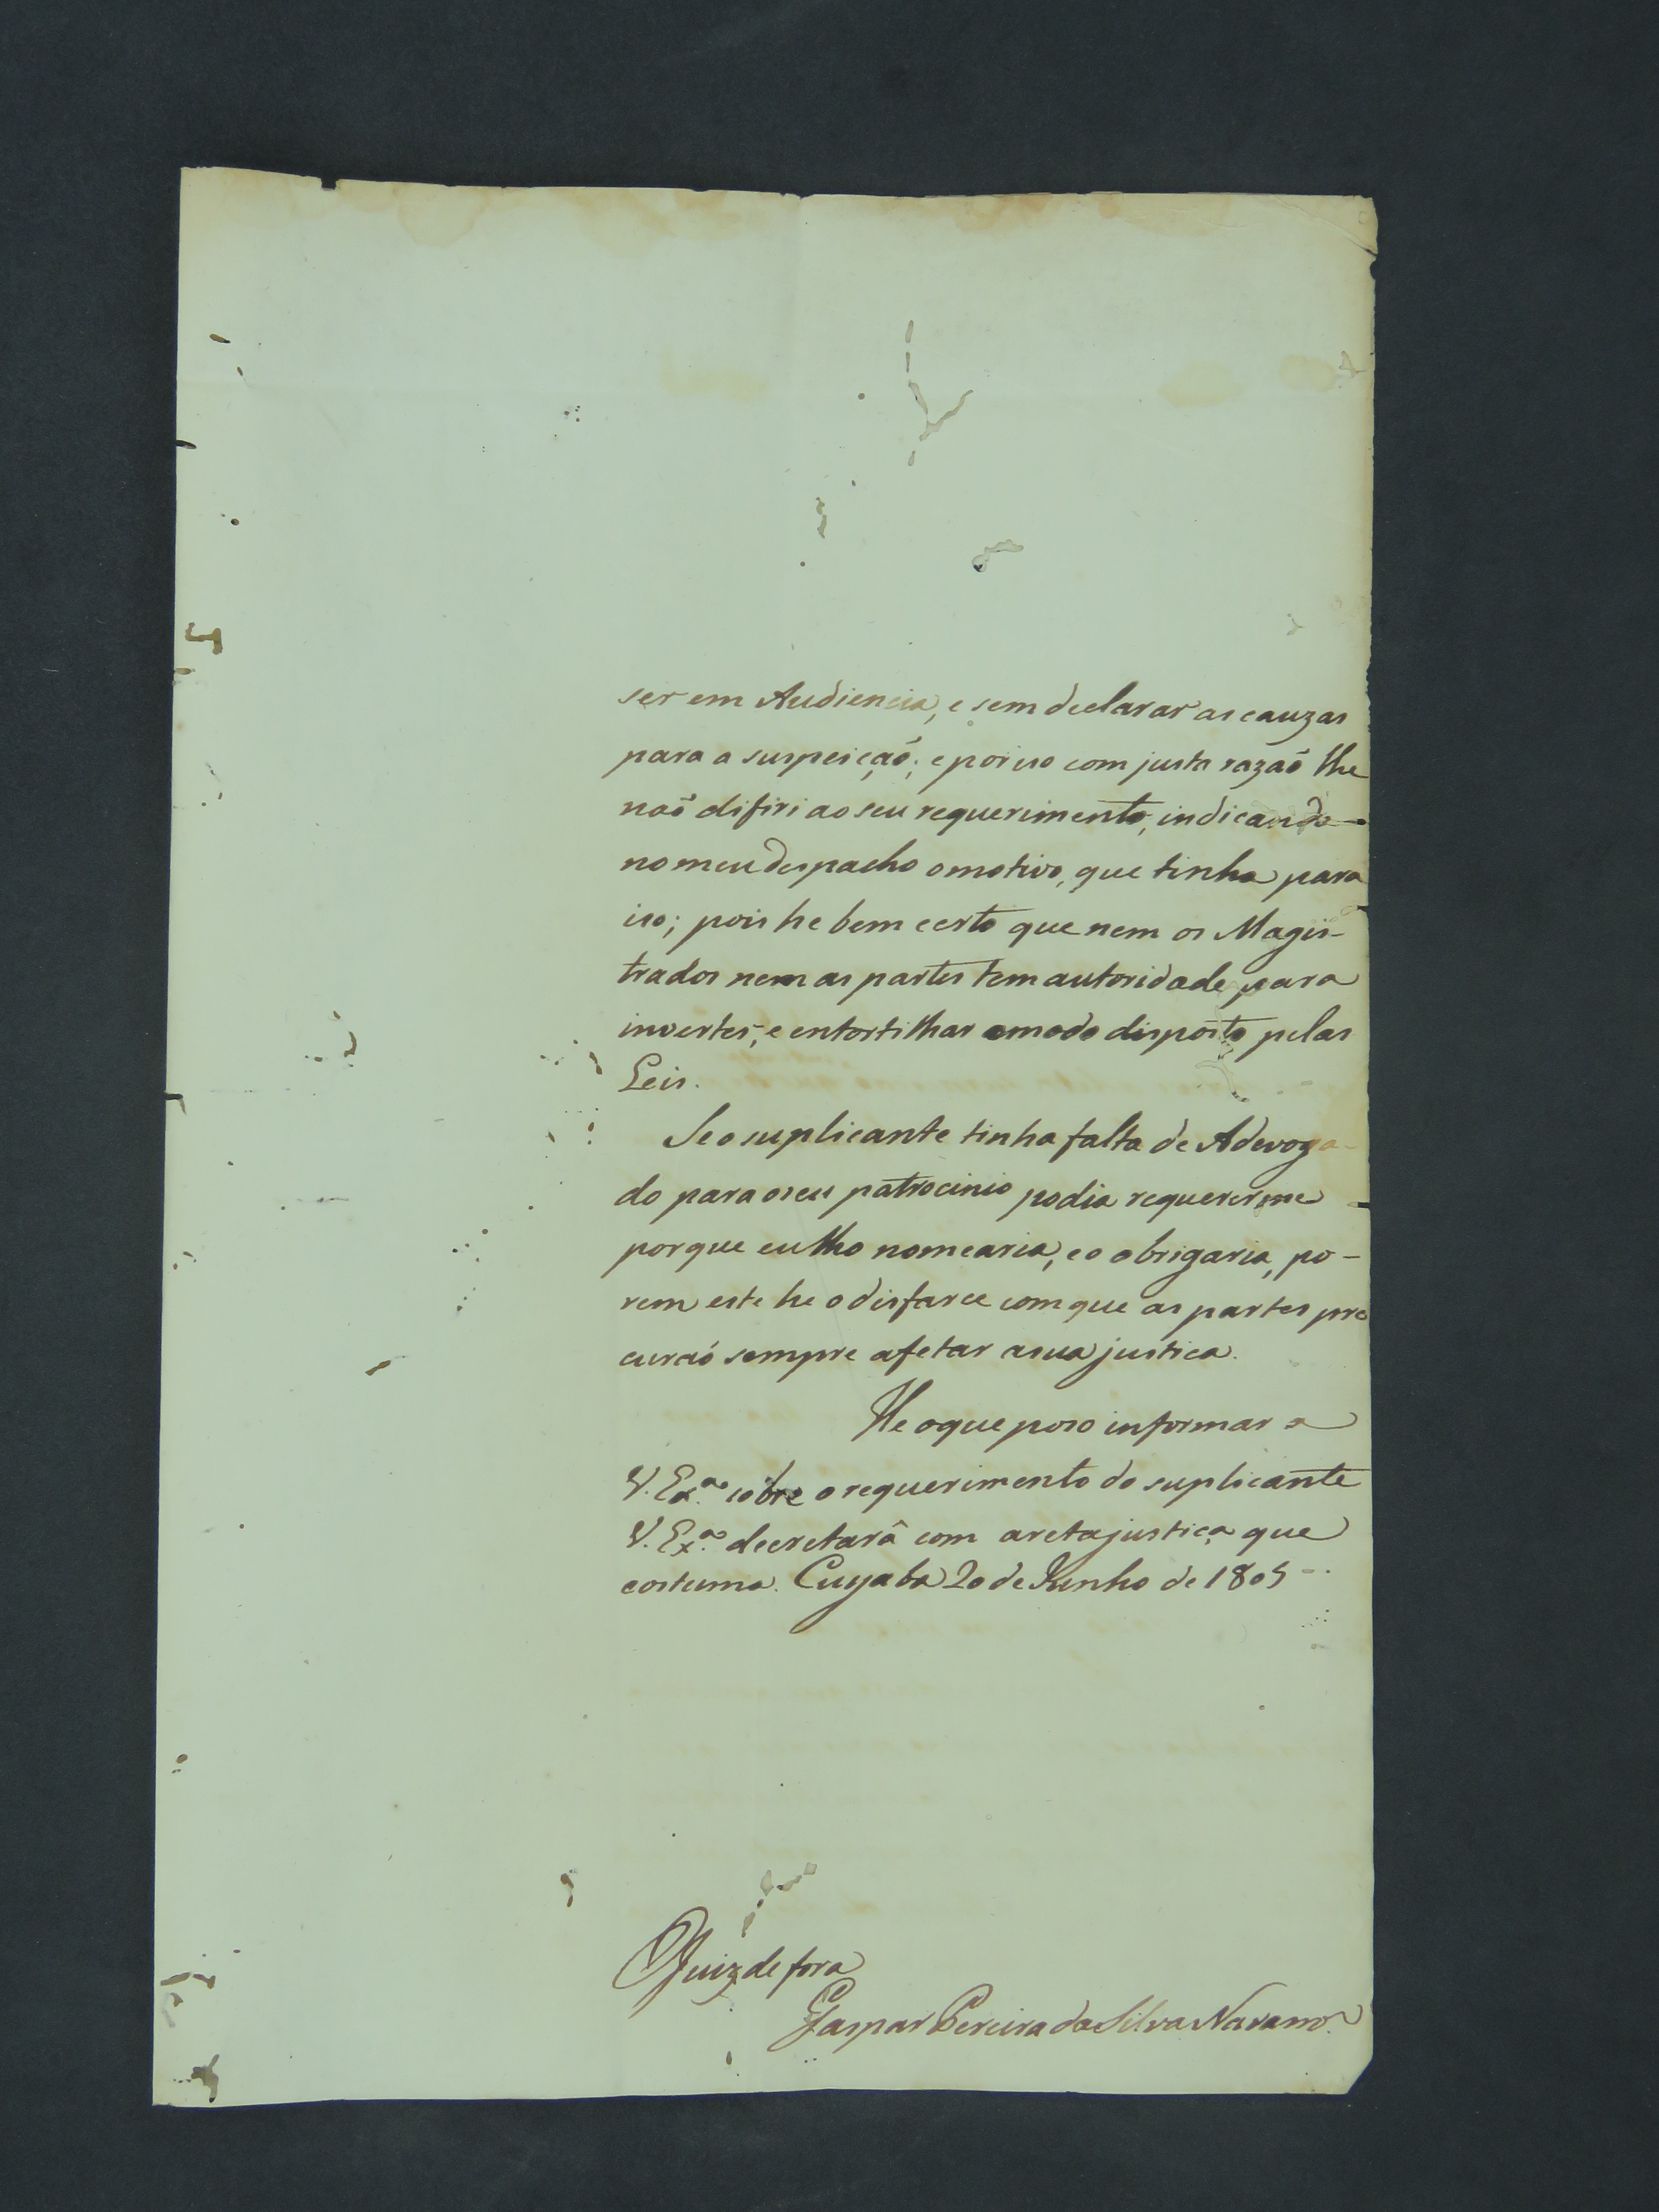 ser em Audiencia, e sem declarar as cauzas
para a suspeiçaõ; e por iso com justa razaõ lhe
naõ difiri ao seu requerimento, indicando
no meu despacho o motivo, que tinha para
iso; pois he bem certo que nem os Magis-
trados nem as partes tem autoridade para
inverter, e entortilhar o modo disposto pelas
Leis.
Se o suplicante tinha falta de Advoga
do para o seu patrocinio podia requererme
porque eu lho nomearia, e o obrigaria, po-
rem este he o disfarce com que as partes pro
curaõ sempre afetar a sua justica.
He o que poso informar a
V. Ex.ª sobre o requerimento do suplicante
V. Ex.ª decretarâ com a reta justiça que
costuma. Cuyaba 20 de Junho de 1805
O Juiz de fora
Gaspar Pereira da Silva Navarro.